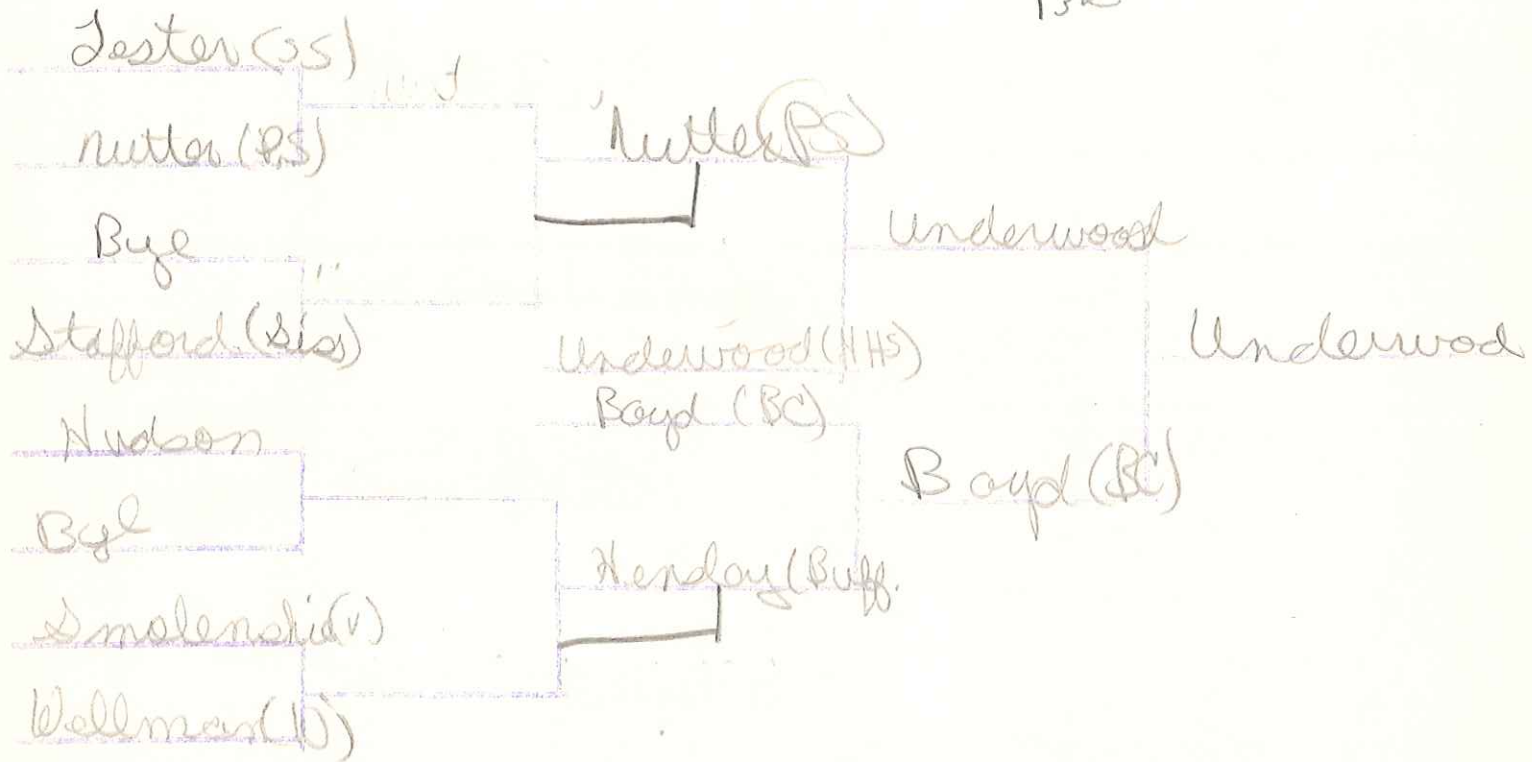 Lester (SS)
Nutter (PS)
Bye
Stafford (Siss)
Hudson
Bye
Smolenski (V)
Wellman (W)
Nutter (PS)
Underwood (HHS)
Boyd (BC)
Henday (Buff.
Underwood
Boyd (BC)
Underwod